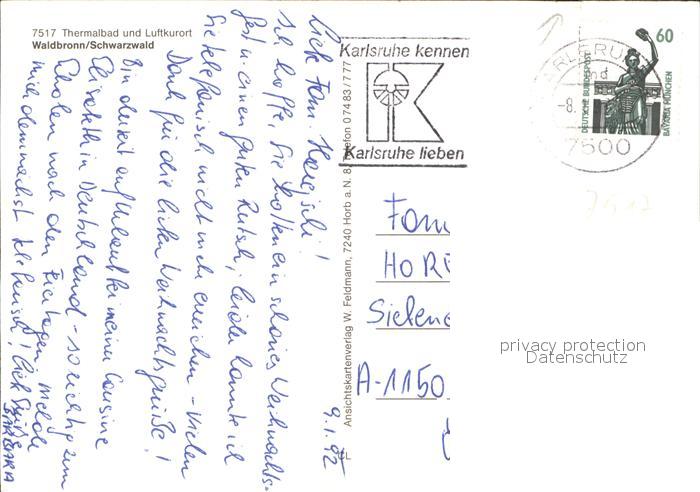 7517 Thermalbad und Luftkurort
Waldbronn/Schwarzwald
9.1.92
Liebe Fam. !
Ich hoffe, Sie hatten ein schönes Weihnachts-
fest u. einen guten Rutsch; leider konnte ich
Sie telefonisch nicht mehr erreichen - Vielen
Dank für die lieben Weihnachtsgrüße!
Bin derzeit auf Urlaub bei meiner Cousine
Elisabeth in Deutschland - so richtig zum
nach den Feiertagen, melde
mich demnächst telefonisch! Liebe Grüße
BARBARA
Ansichtskartenverlag W. Feldmann, 7240 Horb a.N. 8, Telefon 07483/777
Karlsruhe kennen
K
Karlsruhe lieben
KARLSRUHE
-8.
7500
60
DEUTSCHE BUNDESPOST
BAVARIA MÜNCHEN
Fam
HOR
Sielen
A-1150
privacy protection
Datenschutz